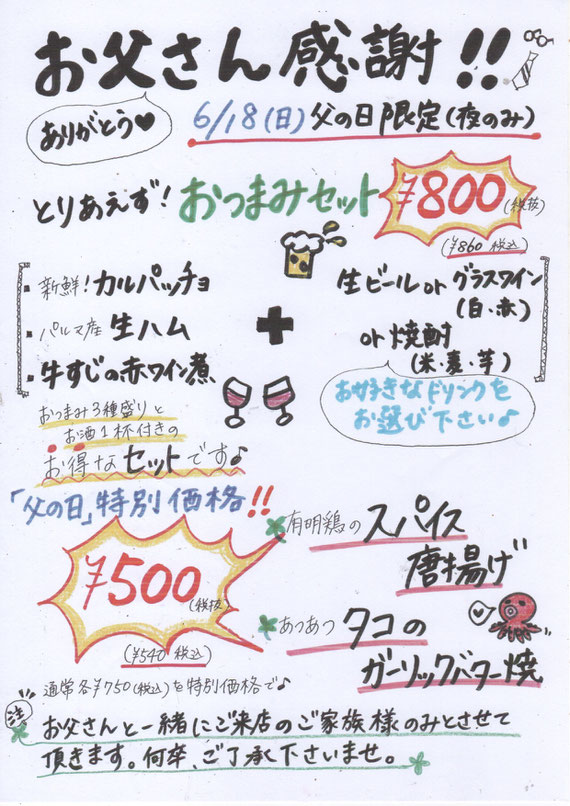 お父さん感謝!!
ありがとう♥
6/18(日)父の日限定(夜のみ)
とりあえず!おつまみセット ¥800(税抜)
(¥860 税込)
・新鮮!カルパッチョ
・パルマ産 生ハム
・牛すじの赤ワイン煮
+
生ビール or グラスワイン
(白・赤)
or 焼酎
(米・麦・芋)
お好きなドリンクを
お選び下さい♪
おつまみ3種盛りと
お酒1杯付きの
お得なセットです♪
「父の日」特別価格!!
¥500(税抜)
(¥540 税込)
通常各¥750(税込)を特別価格で♪
有明鶏のスパイス
唐揚げ
あつあつ タコの
ガーリックバター焼
注
お父さんと一緒にご来店のご家族様のみとさせて
頂きます。何卒、ご了承下さいませ。